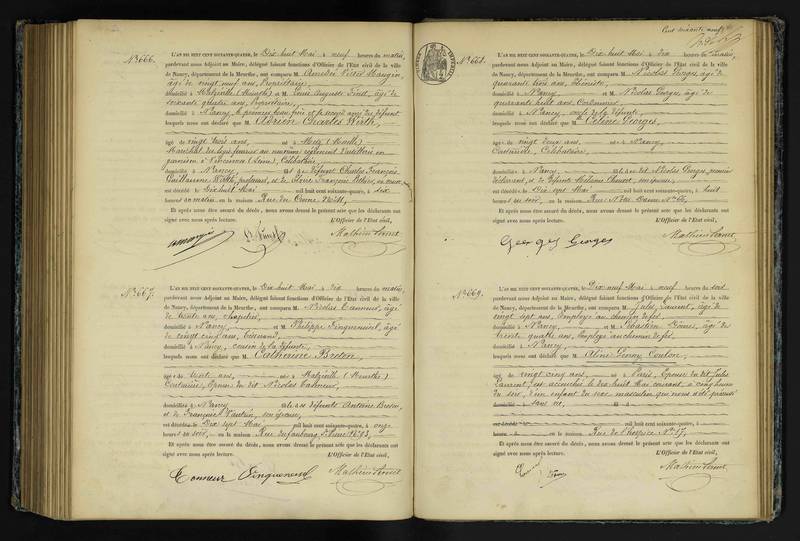 Cent soixante neuf
No. 666.
L'AN MIL HUIT CENT SOIXANTE-QUATRE, le Dix huit Mai à neuf heures du matin,
pardevant nous Adjoint au Maire, délégué faisant fonctions d'Officier de l'Etat civil de la ville
de Nancy, département de la Meurthe, ont comparu M. Amédée Victor Maugin,
âgé de vingt neuf ans, Propriétaire,
domicilié à (Meurthe) et M. Louis Auguste âgé de
soixante quatre ans, Propriétaire,
domicilié à Nancy, le premier beau frère et le second ami du défunt
lesquels nous ont déclaré que M. Adrien Charles Wirth,
âgé de vingt trois ans, né à Metz (Moselle)
Maréchal des logis fourrier au neuvième régiment d'artillerie en
garnison à Vincennes (Seine), Célibataire,
domicilié à Nancy fils de défunt Charles François
Guillaume Wirth, professeur, et de François
est décédé le Dix huit Mai mil huit cent soixante-quatre, à six
heures du matin en la maison Rue du
Et après nous être assuré du décès, nous avons dressé le présent acte que les déclarants ont
signé avec nous après lecture. L'Officier de l'Etat civil,
Maugin
No. 667.
L'AN MIL HUIT CENT SOIXANTE-QUATRE, le Dix huit Mai à dix heures du matin,
pardevant nous Adjoint au Maire, délégué faisant fonctions d'Officier de l'Etat civil de la ville
de Nancy, département de la Meurthe, ont comparu M. Nicolas âgé
de trente ans,
domicilié à Nancy, et M. Philippe Finquenel, âgé
de vingt cinq ans,
domicilié à Nancy, cousin de la défunte
lesquels nous ont déclaré que Catherine Breton,
âgée de trente ans, née à (Meurthe)
Couturière, Epouse du dit Nicolas
domiciliée à Nancy fille de défunts Antoine Breton,
et de Françoise Vautrin, son épouse,
est décédée le Dix sept Mai mil huit cent soixante-quatre, à onze
heures du soir, en la maison Rue du faubourg
Et après nous être assuré du décès, nous avons dressé le présent acte que les déclarants ont
signé avec nous après lecture. L'Officier de l'Etat civil,
No. 668.
L'AN MIL HUIT CENT SOIXANTE-QUATRE, le Dix huit Mai à dix heures du matin,
pardevant nous Adjoint au Maire, délégué faisant fonctions d'Officier de l'Etat civil de la ville
de Nancy, département de la Meurthe, ont comparu M. Nicolas Georges, âgé de
quarante trois ans, Ebéniste,
domicilié à Nancy et M. Nicolas Georges, âgé de
quarante huit ans, Cordonnier,
domicilié à Nancy, oncle de la défunte
lesquels nous ont déclaré que Célina Georges,
âgée de vingt deux ans, née à Nancy
Couturière, Célibataire,
domiciliée à Nancy, fille du dit Nicolas Georges, premier
déclarant, et de défunte son épouse,
est décédée le Dix sept Mai mil huit cent soixante-quatre, à huit
heures du soir, en la maison Rue Notre Dame No.
Et après nous être assuré du décès, nous avons dressé le présent acte que les déclarants ont
signé avec nous après lecture. L'Officier de l'Etat civil,
Georges Georges
No. 669.
L'AN MIL HUIT CENT SOIXANTE-QUATRE, le Dix neuf Mai à neuf heures du
pardevant nous Adjoint au Maire, délégué faisant fonctions d'Officier de l'Etat civil de la ville
de Nancy, département de la Meurthe, ont comparu M. Jules Laurent, âgé de
vingt sept ans, Employé au chemin de fer,
domicilié à Nancy, et M. Sébastien âgé de
trente quatre ans, Employé au chemin de fer,
domicilié à Nancy,
lesquels nous ont déclaré que M. Aline Coulon,
âgée de vingt cinq ans, née à Paris, Epouse du dit Jules
Laurent, est accouchée le dix huit Mai courant à cinq heures
du soir, d'un enfant du sexe masculin qui nous a été présenté
sans vie,
heures du en la maison Rue de l'hospice No. 17,
Et après nous être assuré du décès, nous avons dressé le présent acte que les déclarants ont
signé avec nous après lecture. L'Officier de l'Etat civil,